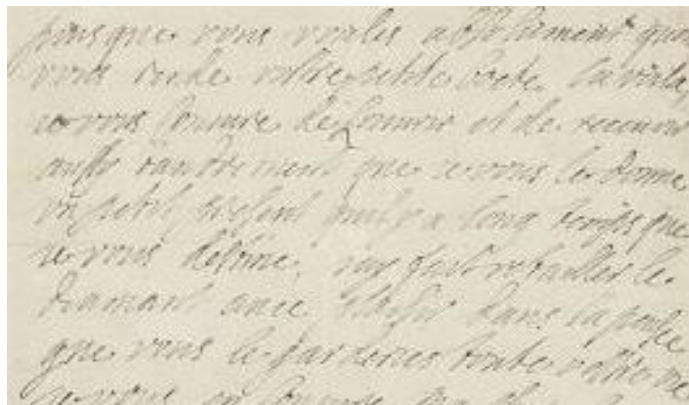 puisque vous voules absolument que
vous rende vostre petite boete la voila
ie vous coniure de l'ouurir et de receuoir
aussy tandrement que ie vous le donne
un petit present quil y a long temps que
ie vous destine, iay fait retailler le
diamant auec plaisir dans la pensee
que vous le garderies toute vostre vie
ie vous en coniure